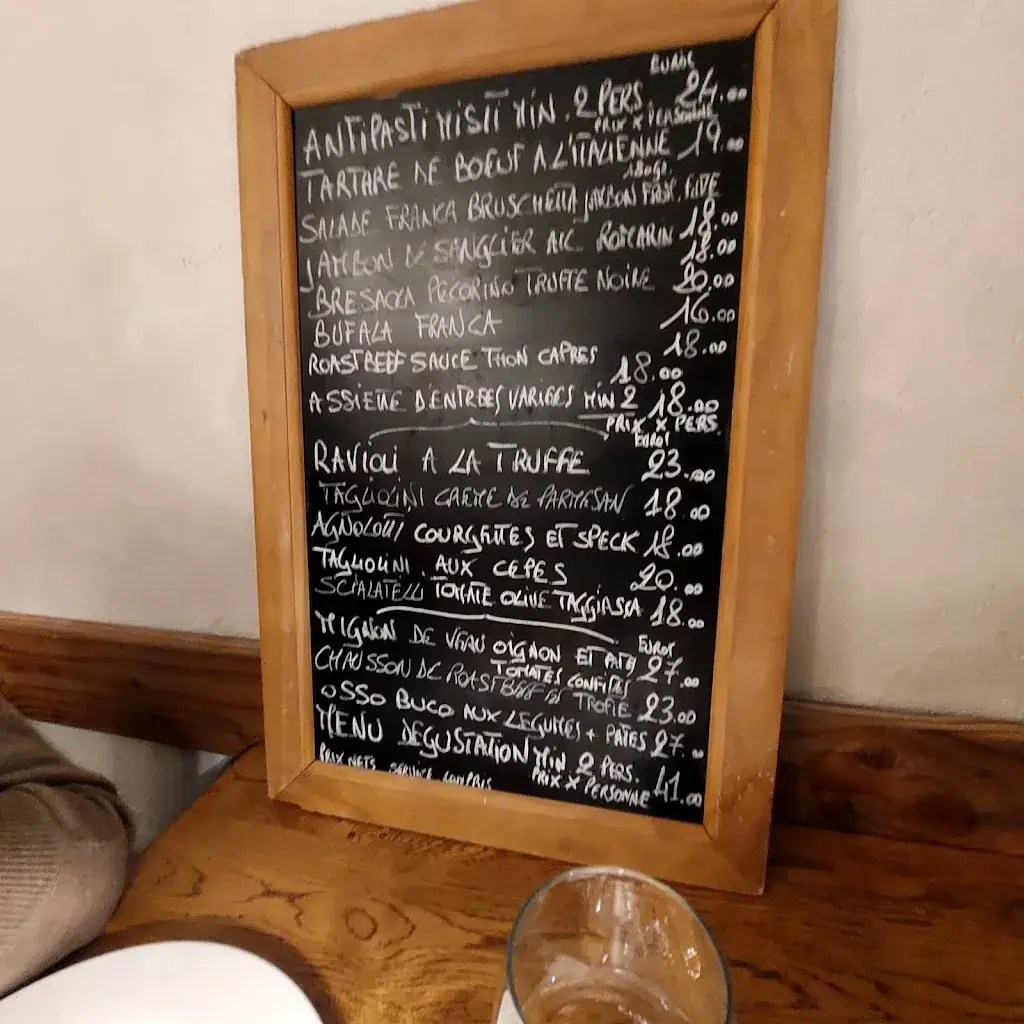 EUROS
ANTIPASTI MISTI MIN. 2 PERS 24.00
PRIX X PERSONNE
TARTARE DE BOEUF A L'ITALIENNE 19.00
180gr.
SALADE FRANCA BRUSCHETTA JAMBON
18.00
JAMBON DE SANGLIER AIL ROMARIN 18.00
BRESAOLA PECORINO TRUFFE NOIRE 20.00
BUFALA FRANCA 16.00
18.00
ROASTBEEF SAUCE THON CAPRES 18.00
ASSIETTE D'ENTREES VARIEES MIN 2 18.00
PRIX X PERS.
EUROS
RAVIOLI A LA TRUFFE 23.00
TAGLIOLINI CREME DE PARMESAN 18.00
AGNOLOTTI COURGETTES ET SPECK 18.00
TAGLIOLINI AUX CEPES 20.00
SCIALATELLI TOMATE OLIVE TAGGIASCA 18.00
EUROS
MIGNON DE VEAU OIGNON ET 27.00
TOMATES CONFITES
CHAUSSON DE ROASTBEEF ET TROFIE 23.00
OSSO BUCO AUX LEGUMES + PATES 27.
MENU DEGUSTATION MIN 2 PERS. 41.00
PRIX X PERSONNE
PRIX NETS SERVICE COMPRIS